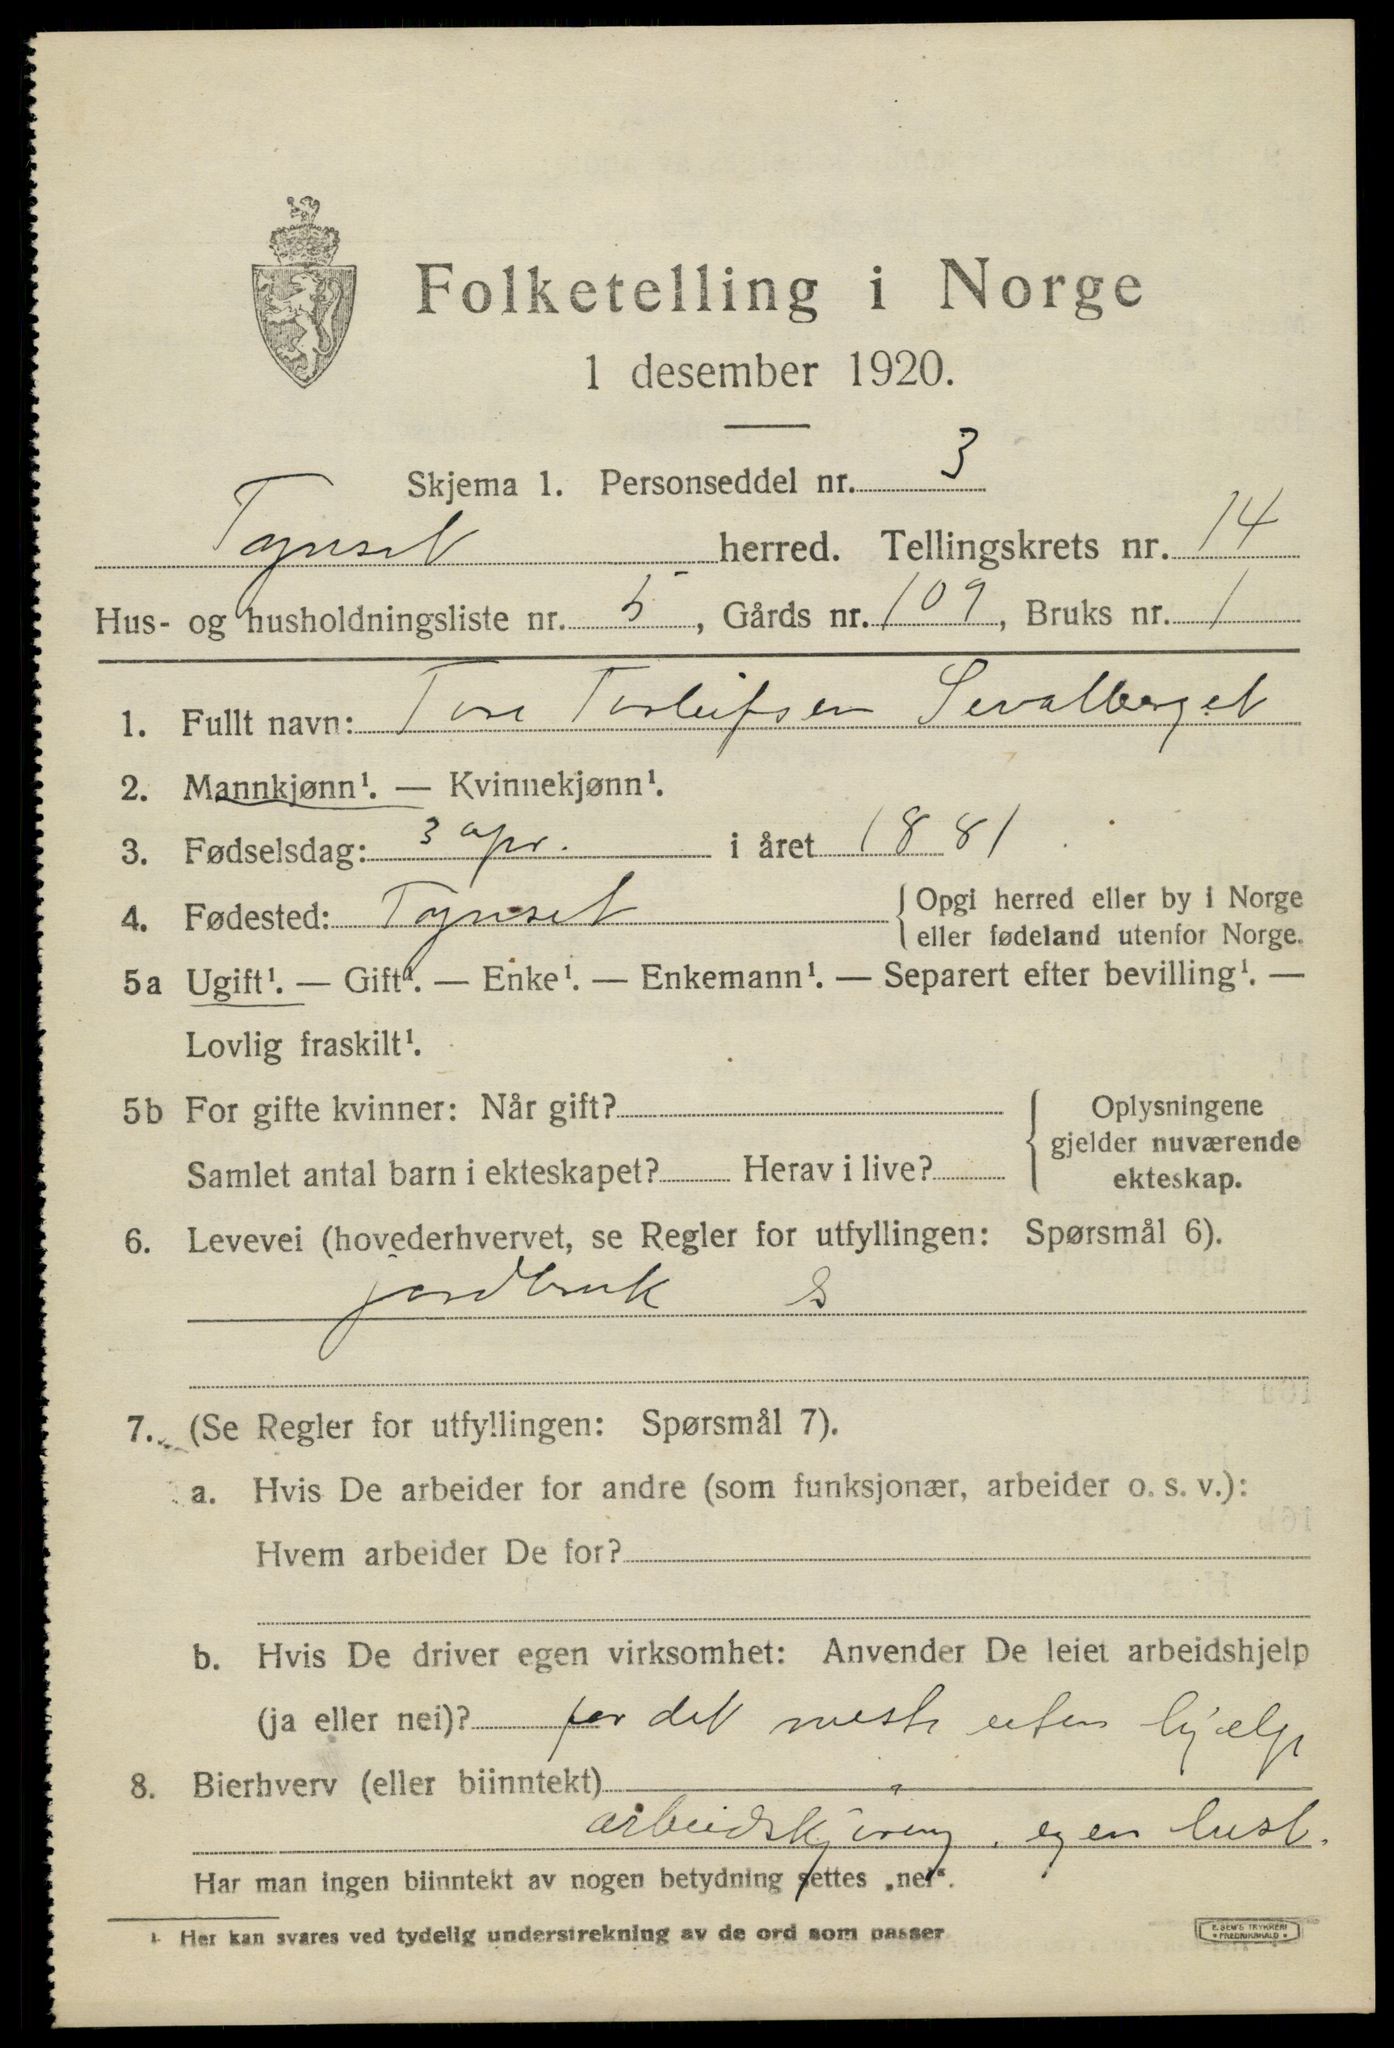 Folketelling i Norge
1 desember 1920.
Skjema 1. Personseddel nr. 3
Tynset herred. Tellingskrets nr. 14
Hus- og husholdningsliste nr. 5, Gårds nr. 109, Bruks nr. 1
1. Fullt navn: Tore Torleifsen Sevatberget
2. Mannkjønn¹. — Kvinnekjønn¹.
3. Fødselsdag: 3 apr. i året 1881
4. Fødested: Tynset {Opgi herred eller by i Norge
eller fødeland utenfor Norge.
5a Ugift¹. — Gift¹. — Enke¹. — Enkemann¹. — Separert efter bevilling¹. —
Lovlig fraskilt¹.
5b For gifte kvinner: Når gift? { Oplysningene
gjelder nuværende
Samlet antal barn i ekteskapet? Herav i live?
ekteskap.
6. Levevei (hovederhvervet, se Regler for utfyllingen: Spørsmål 6).
jordbruk S
7. (Se Regler for utfyllingen: Spørsmål 7).
a. Hvis De arbeider for andre (som funksjonær, arbeider o. s. v.):
Hvem arbeider De for?
b. Hvis De driver egen virksomhet: Anvender De leiet arbeidshjelp
(ja eller nei)? for det meste uten hjælp
8. Bierhverv (eller biinntekt)
arbeidskjøring, egen hest.
Har man ingen biinntekt av nogen betydning settes „nei“.
¹ Her kan svares ved tydelig understrekning av de ord som passer
E. SEM'S TRYKKERI
• FREDRIKSHALD •